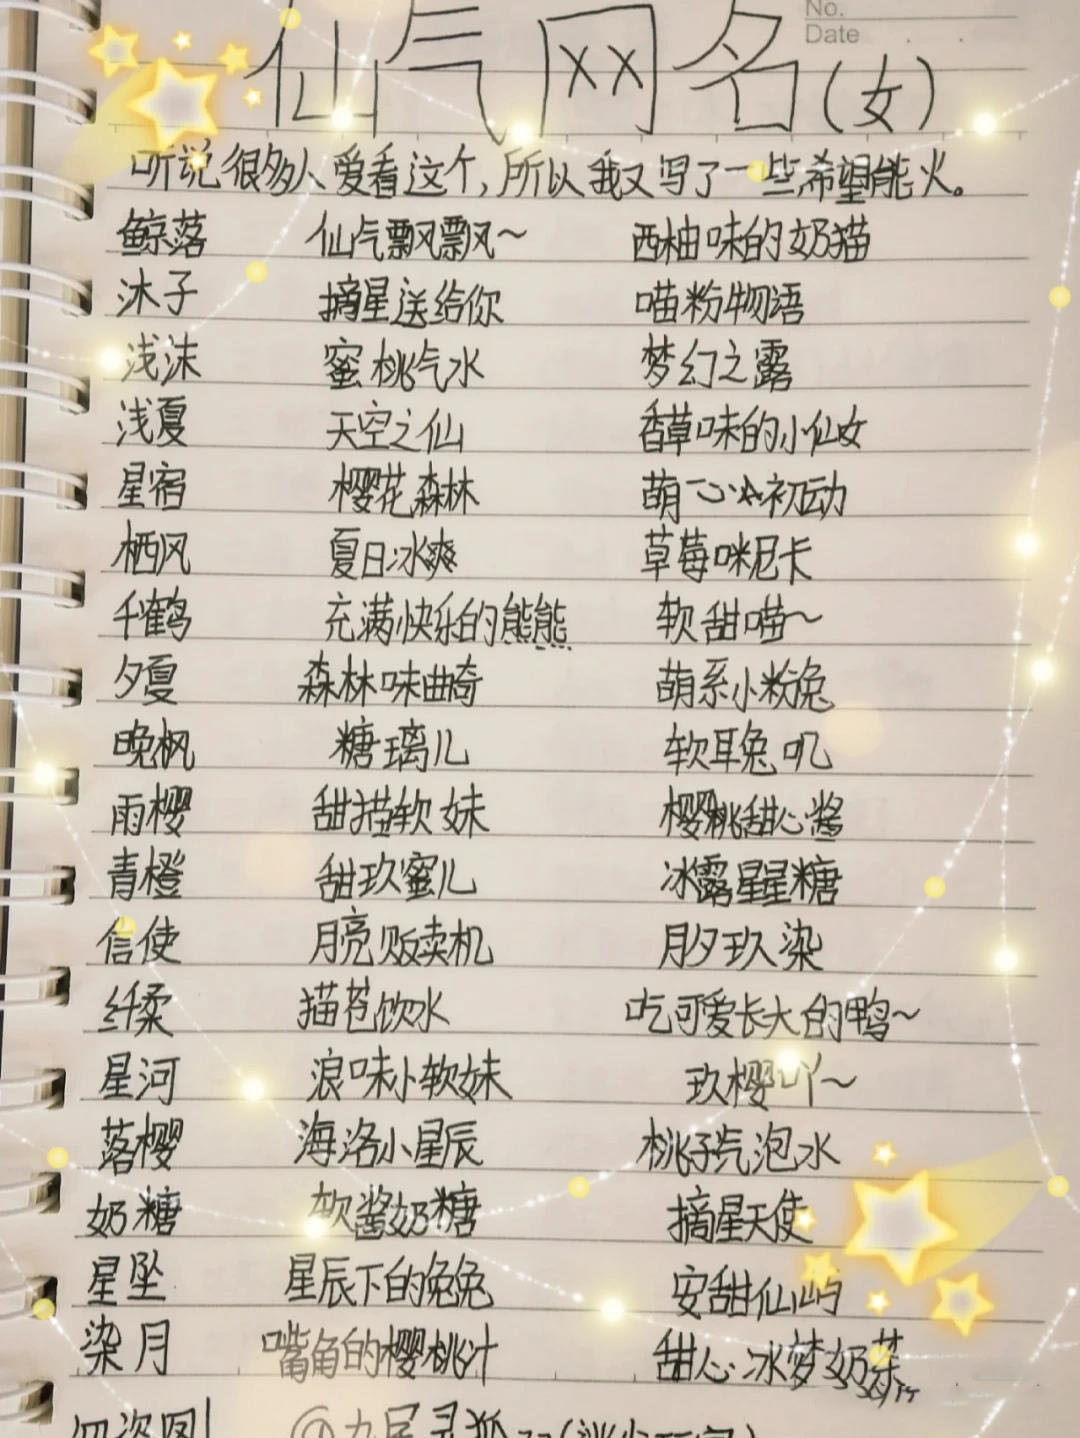 No.
Date
仙气网名(女)
听说很多人爱看这个,所以我又写了一些,希望能火。
鲸落 仙气飘飘~ 西柚味的奶猫
沐子 摘星送给你 喵粉物语
浅沫 蜜桃气水 梦幻之露
浅夏 天空之仙 香草味的小仙女
星宿 樱花森林 萌一心☆初动
栖风 夏日冰爽 草莓咪尼卡
千鹤 充满快乐的熊熊 软甜喵~
夕夏 森林味曲奇 萌系小粉兔
晚枫 糖璃儿 软耳兔叽
雨樱 甜描软妹 樱桃甜心酱
青橙 甜玖蜜儿 冰露星星糖
信使 月亮贩卖机 月夕玖染
纤柔 猫苍饮水 吃可爱长大的鸭~
星河 浪味小软妹 玖樱吖~
落樱 海洛小星辰 桃子汽泡水
奶糖 软酱奶糖 摘星天使
星坠 星辰下的兔兔 安甜仙屿
染月 嘴角的樱桃汁 甜心冰梦奶茶